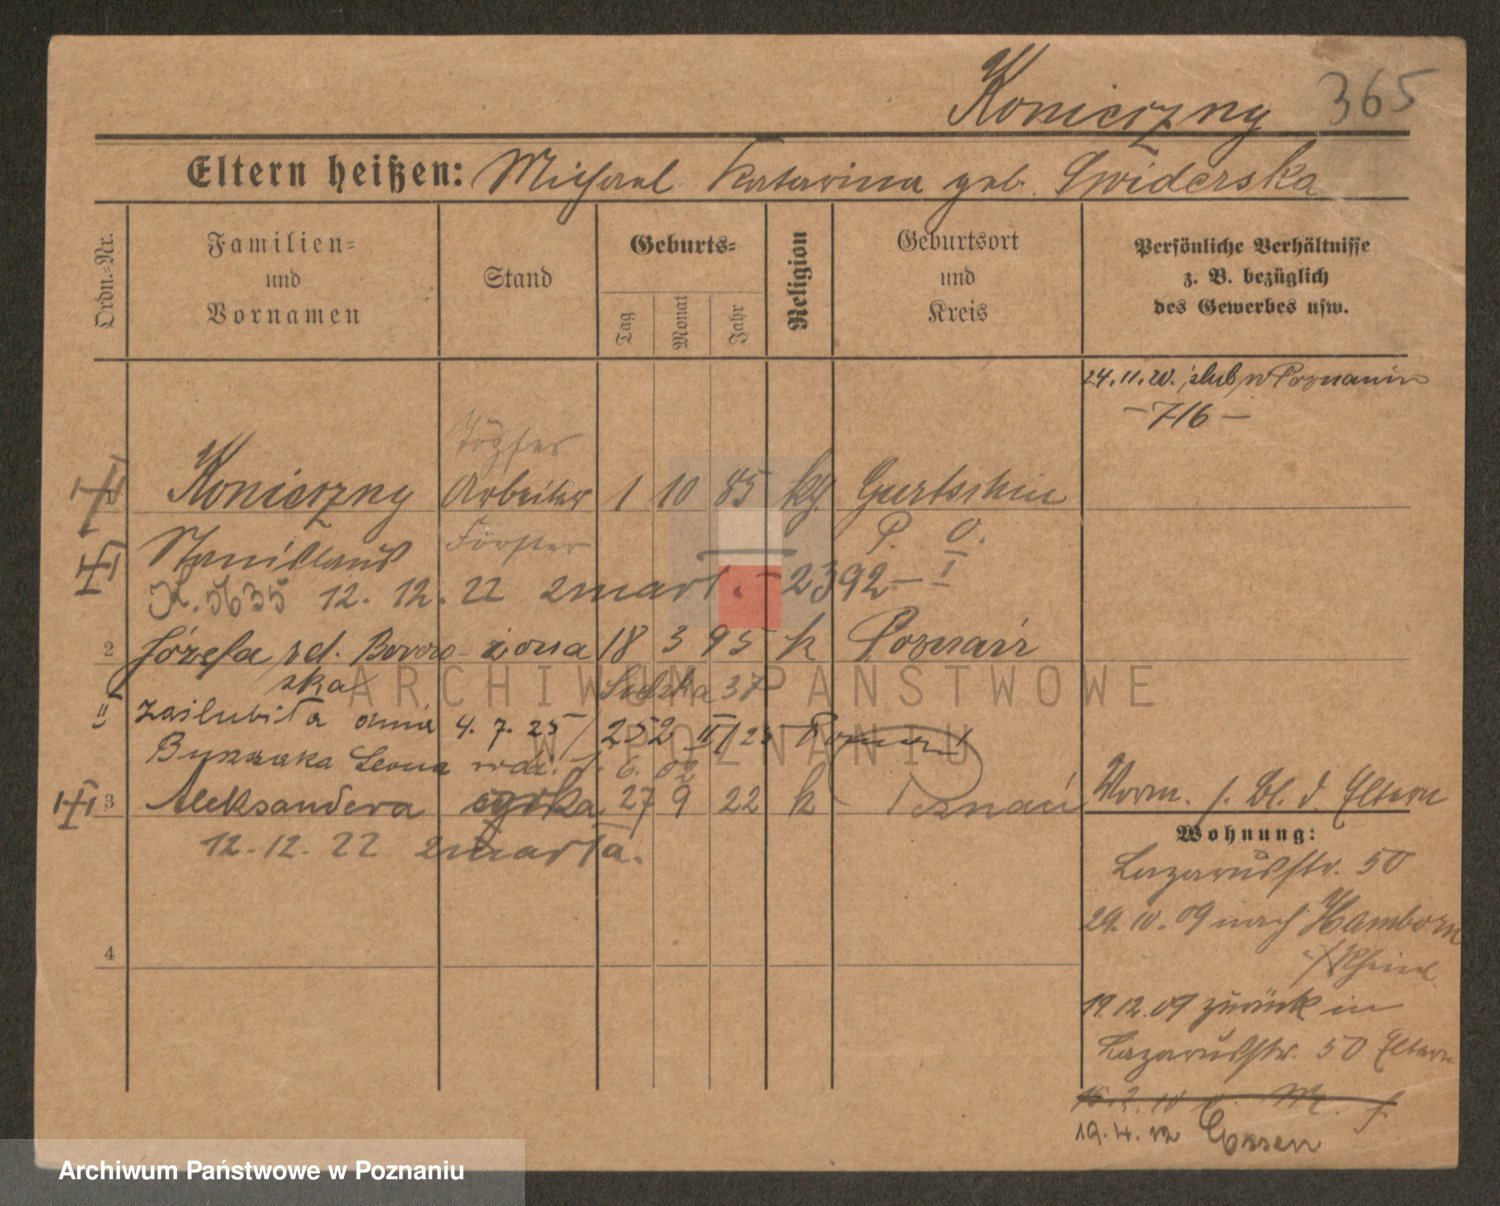 Konieczny 365
Eltern heißen: Michael Katarina geb. Swiderska
Ordn.=Nr.
Familien=
und
Vornamen
Stand
Geburts=
Tag
Monat
Jahr
Religion
Geburtsort
und
Kreis
Persönliche Verhältnisse
z. B. bezüglich
des Gewerbes usw.
24.11.20. ślub w Poznaniu
– 716 –
Töpfer
Konieczny Arbeiter 1 10 85 kg. Gurtschin
Stanislaus Förster P. O.
K. 5635 12. 12. 22 zmarł. – 2392 – I
2 Józefa zd. Borow- żona 18 3 95 k Poznań
ska 37
zaślubiła dnia 4. 7. 25 / 252 II / 25
Leona 6. 02
3 Aleksandera córka 27 9 22 k Poznań
12. 12. 22 zmarła.
4
Worm. f. Bl. d. Eltern
Wohnung:
Lazarusstr. 50
29. 10. 09 nach Hamborn
/Rheinl.
19. 12. 09 zurück in
Lazarusstr. 50 Eltern
19. 4. 12 Essen
ARCHIWUM PAŃSTWOWE
W POZNANIU
Archiwum Państwowe w Poznaniu